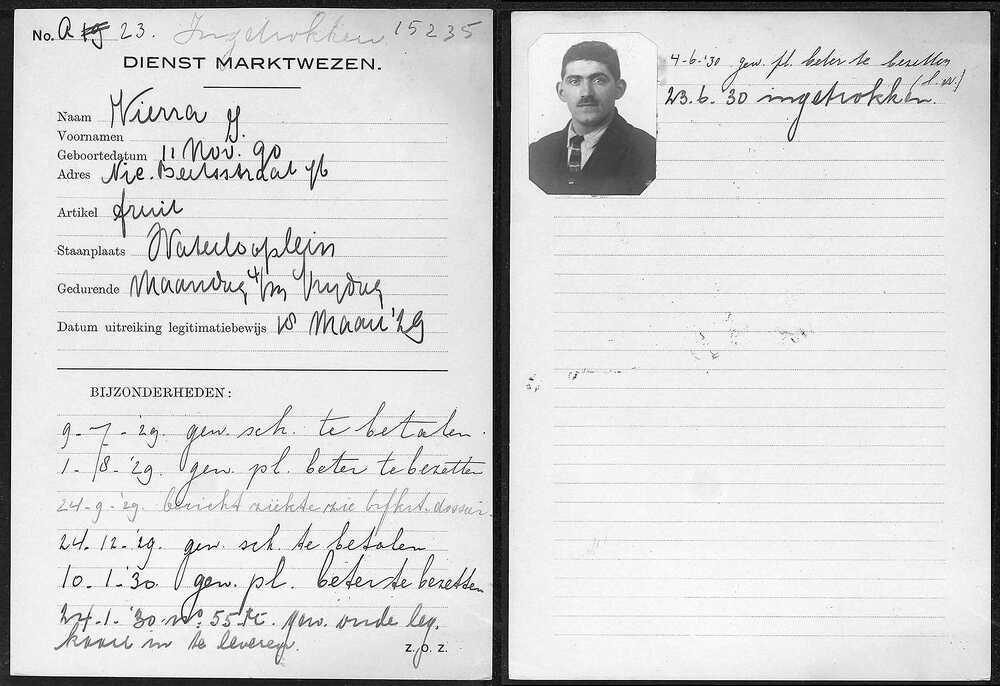 No. A 19 23. Ingetrokken 15235
DIENST MARKTWEZEN.
Naam Vierra
Voornamen J.
Geboortedatum 11 Nov. 90
Adres Nic. Beetsstraat 76
Artikel fruit
Staanplaats Waterlooplein
Gedurende Maandag t/m Vrijdag
Datum uitreiking legitimatiebewijs 18 Maart '29
BIJZONDERHEDEN:
9-7-'29. gew. sch. te betalen.
1-8-'29. gew. pl. beter te bezetten
24-9-'29. bericht ziekte zie dossier.
24-12-'29. gew. sch. te betalen
10-1-'30. gew. pl. beter te bezetten
24-1-'30 no. 55 gew. oude leg.
kaart in te leveren.
Z. O. Z.
4-6-'30 gew. pl. beter te bezetten
23.6.30 ingetrokken.